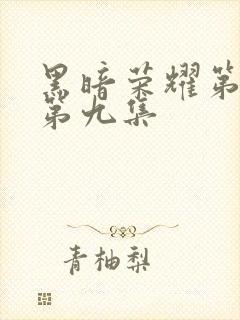 黑暗荣耀第
第九集
青柚梨